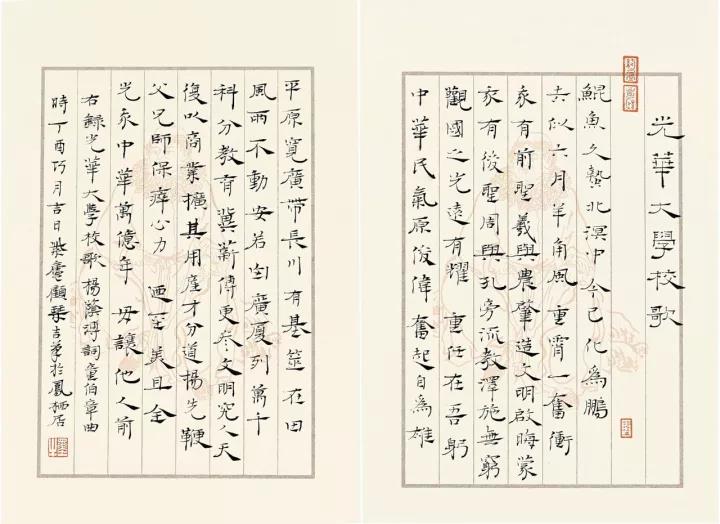 光華大學校歌
鯤魚久蟄北溟中 今已化為鵬
去似六月羊角風 重霄一奮衝
家有前聖羲與農 肇造文明啟晦蒙
家有後聖周與孔 旁流教澤施無窮
觀國之光遠有耀 重任在吾躬
中華民氣原俊偉 奮起自為雄
平原寬廣帶長川 有基筮在田
風雨不動安若山 廣廈列萬千
科分教育冀薪傳 更參文明究人天
復以商業擴其用 產才分道揚先鞭
父兄師保瘁心力 迺至美且全
光我中華萬億年 毋讓他人前
右錄光華大學校歌 楊蔭溥詞 童伯章曲
時丁酉巧月吉日 顧琴 於鳳栖居